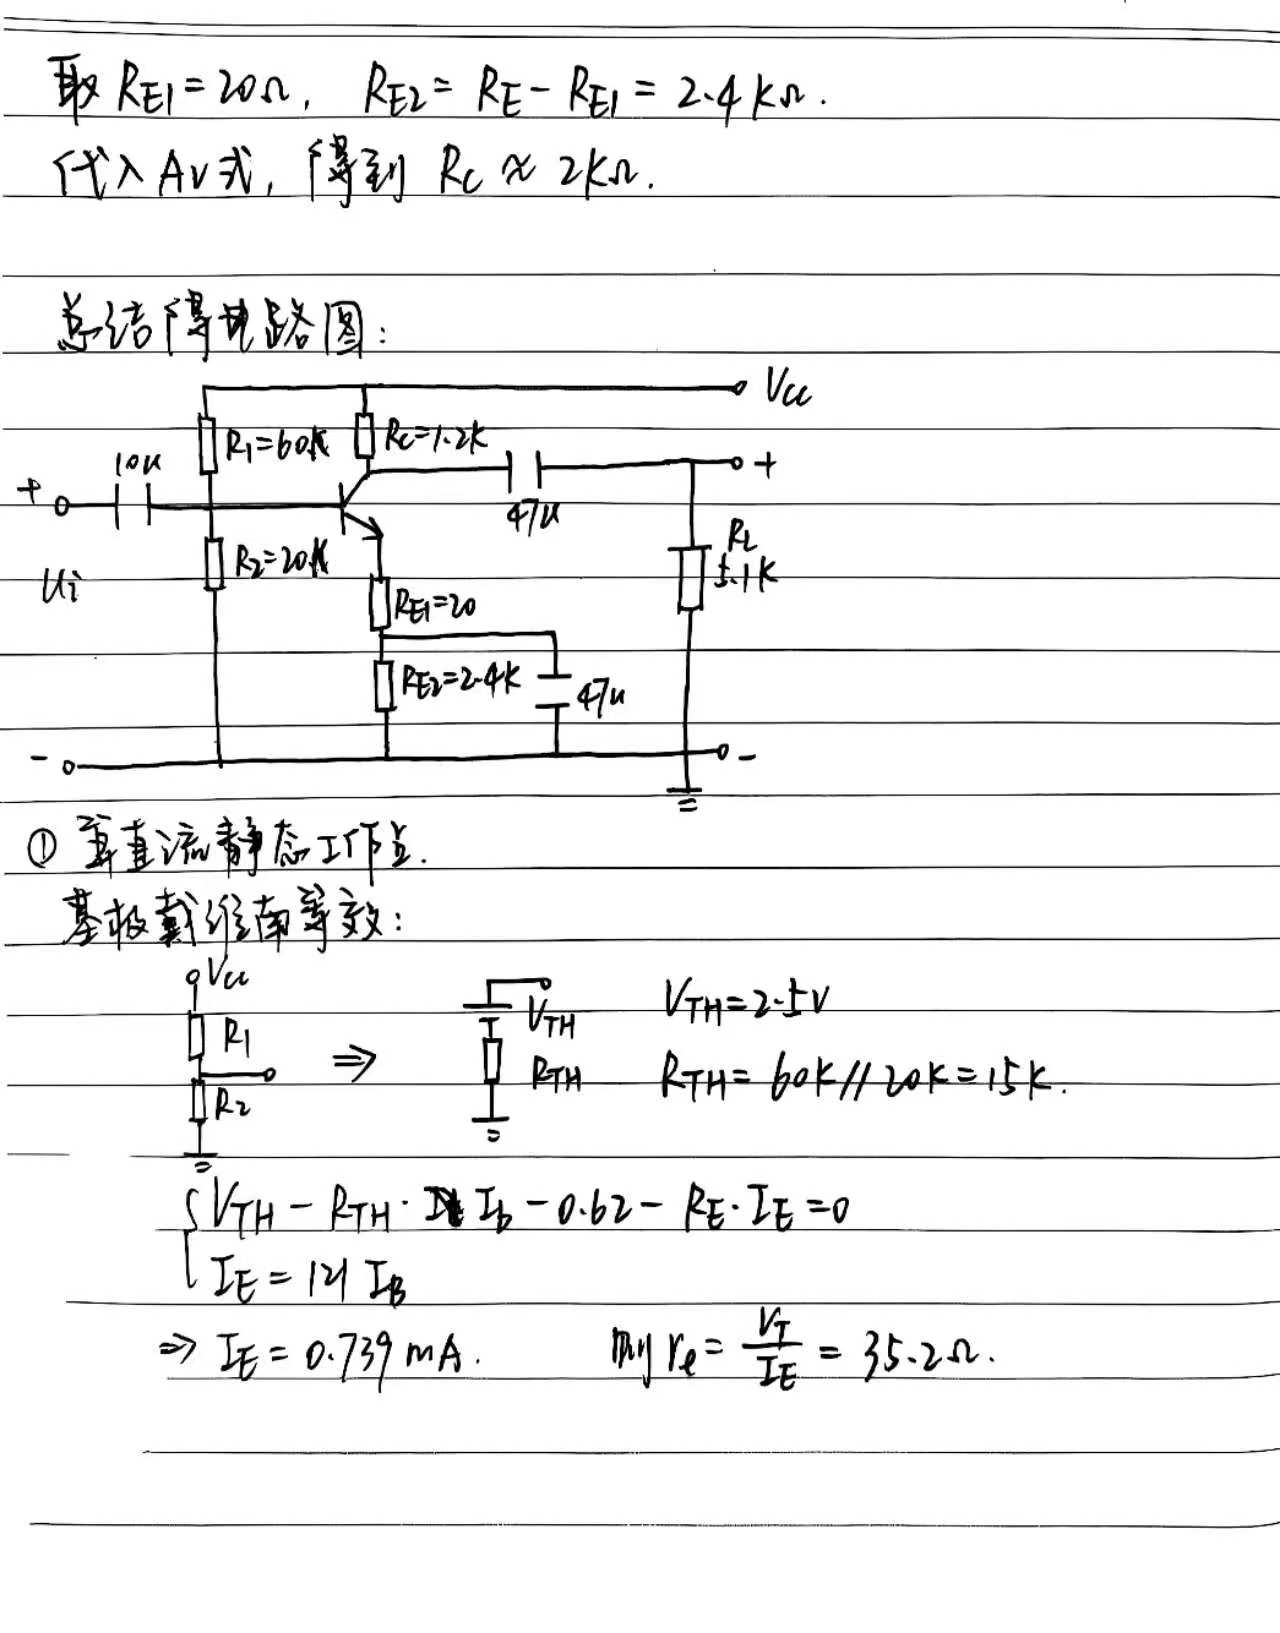 取 RE1=20Ω, RE2= RE- RE1= 2.4 KΩ.
代入 Av式, 得到 Rc ≈ 2KΩ.
总结得电路图:
Vcc
R1=60K
Rc=1.2K
10u
+
+
47u
Ui
R2=20K
RL
5.1K
RE1=20
RE2=2.4K
47u
-
-
① 算直流静态工作点.
基极戴维南等效:
Vcc
R1
R2
⇒
VTH
RTH
VTH=2.5V
RTH= 60K//20K=15K.
VTH - RTH · Ib - 0.62 - RE· IE =0
IE = 121 IB
⇒ IE = 0.739 mA. 则 re = VT/IE = 35.2Ω.